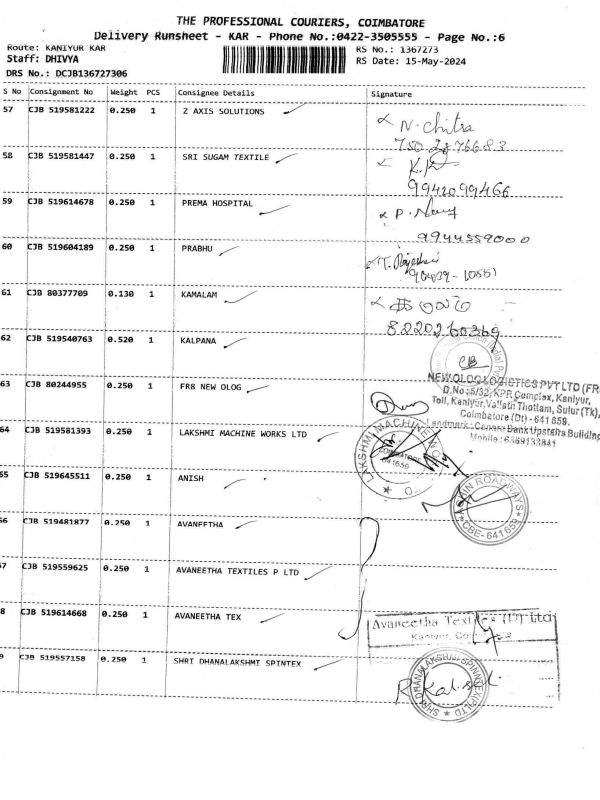 THE PROFESSIONAL COURIERS, COIMBATORE
Delivery Runsheet - KAR - Phone No.:0422-3505555 - Page No.:6
Route: KANIYUR KAR
RS No.: 1367273
Staff: DHIVYA
RS Date: 15-May-2024
DRS No.: DCJB136727306
S No Consignment No Weight PCS Consignee Details Signature
57 CJB 519581222 0.250 1 Z AXIS SOLUTIONS
N. Chitra
750 2876683
58 CJB 519581447 0.250 1 SRI SUGAM TEXTILE
9942099466
59 CJB 519614678 0.250 1 PREMA HOSPITAL
9944559000
60 CJB 519604189 0.250 1 PRABHU
61 CJB 80377709 0.130 1 KAMALAM
8220260369
62 CJB 519540763 0.520 1 KALPANA
63 CJB 80244955 0.250 1 FR8 NEW OLOG
NEW OLOG LOGISTICS PVT LTD (FR
D.No :5/32, KPR Complex, Kaniyur,
Toll, Kaniyur, Thottam, Sulur (Tk),
Coimbatore (Dt) - 641 659.
Landmark : Canara Bank Upstairs Building
Mobile : 6369133841
64 CJB 519581393 0.250 1 LAKSHMI MACHINE WORKS LTD
LAKSHMI MACHINE
COIMBATORE
641659
65 CJB 519645511 0.250 1 ANISH
ROADWAYS
CBE-641659
66 CJB 519481877 0.250 1 AVANEETHA
67 CJB 519559625 0.250 1 AVANEETHA TEXTILES P LTD
68 CJB 519614668 0.250 1 AVANEETHA TEX
Avaneetha Textiles (P) Ltd
Kaniyur,
69 CJB 519557158 0.250 1 SHRI DHANALAKSHMI SPINTEX
SHRI DHANALAKSHMI SPINNTEX (P) LTD